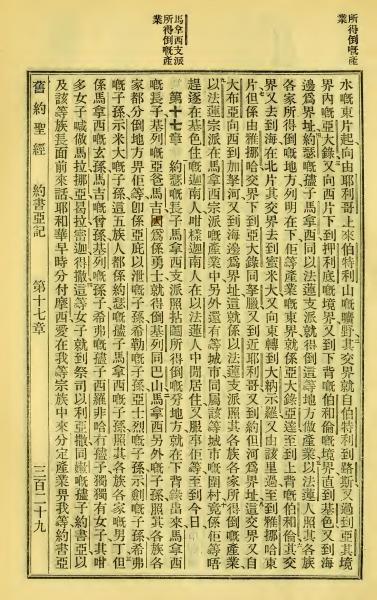 所得倒嘅產業
馬拿西支派所得倒嘅產業
水嘅東片起向由耶利哥上來伯特利山嘅曠野其交界就自伯特利到路斯又過到亞其境
界內嘅亞大錄又向西片下去押利底嘅境界又到下背嘅伯和倫嘅境界直到基色又到海
邊爲界址約瑟嘅孻子馬拿西同以法蓮支派就得倒這等地方做產業以法蓮人照其各族
各家所得倒嘅地方列明在下佢等產業嘅東界就係亞大錄亞達至到上背嘅伯和倫其交
界又去到海在北片其交界去到蜜米大又向東轉到大納示羅又由該里過至到雅挪哈東
片但係由雅挪哈交界下到亞大錄同拏臘又到近耶利哥又到約但河爲界址這交界又自
大布亞向西到加拏河又到海邊爲界址這就係以法蓮支派照其各族各家所得倒嘅產業
以法蓮宗派在馬拿西宗派嘅產業中另外還有等城市同屬該等城市嘅圍村竟係佢等唔
趕逐在基色住嘅迦南人咁樣迦南人在以法蓮人中間居住又服事佢等至到今日
第十七章 約瑟嘅長子馬拿西支派照拈鬮所得倒嘅分地方就在下背錄出來馬拿西
嘅長子基列嘅亞爸馬吉因爲係勇士就得倒基列同巴山馬拿西另外嘅子孫照其各族各
家都分倒地方畀佢等卽係亞庇以泄嘅子孫希勒嘅子孫亞士烈嘅子孫示劍嘅子孫希弗
嘅子孫示米大嘅子孫這五族人都係約瑟嘅孻子馬拿西嘅子孫照其各族各家嘅男丁但
係馬拿西嘅玄孫馬吉嘅曾孫基列嘅孫子希弗嘅孻子西羅非哈冇孻子獨獨有女子其咁
多女子喊做馬拉挪亞曷拉密迦得撒這等女子就到祭司以利亞撒同嫩嘅孻子約書亞以
及該等族長面前來話耶和華早時分付摩西愛在我等宗族中來分定產業畀我等約書亞
舊約聖經 約書亞記 第十七章 三百二十九